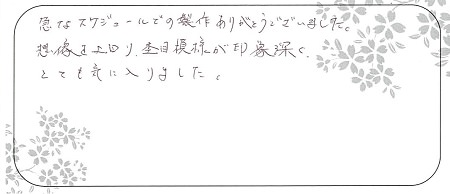 急なスケジュールでの製作ありがとうございました。
想像を上回り、杢目模様が印象深く、
とても気に入りました。